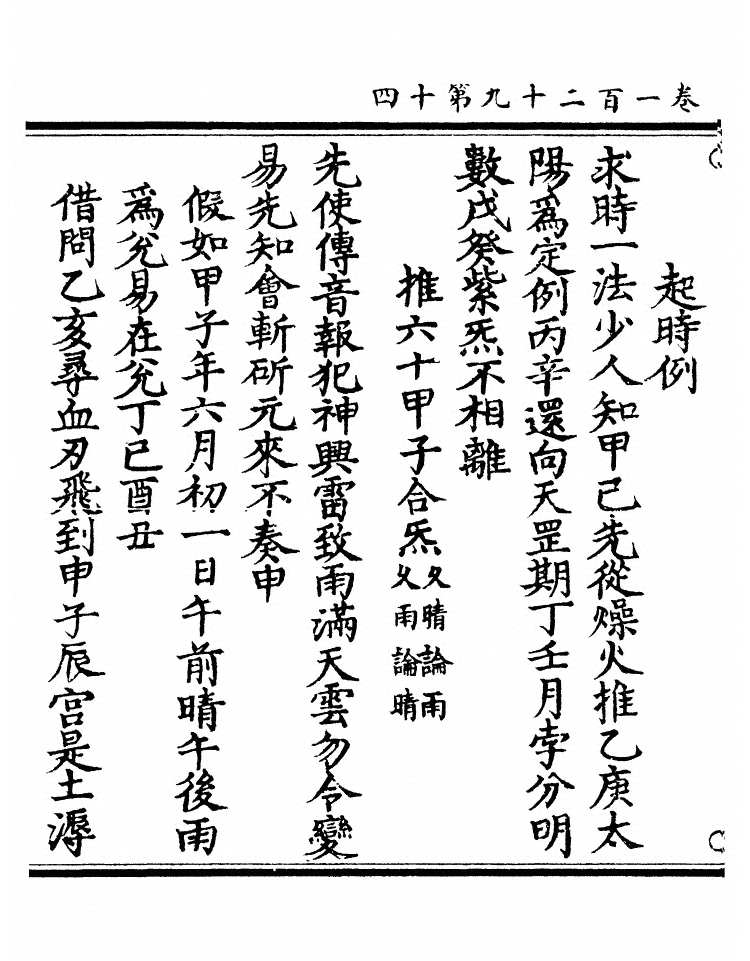 卷一百二十九第十四
起時例
求時一法少人知甲己先從燥火推乙庚太
陽爲定例丙辛還向天罡期丁壬月孛分明
數戊癸紫炁不相離
推六十甲子合炁久晴論雨久雨論晴
先使傳音報犯神興雷致雨滿天雲勿令變
易先知會斬斫元來不奏申
假如甲子年六月初一日午前晴午後雨
爲兊易在兊丁巳酉丑
借問乙亥尋血刃飛到申子辰宮是土溽